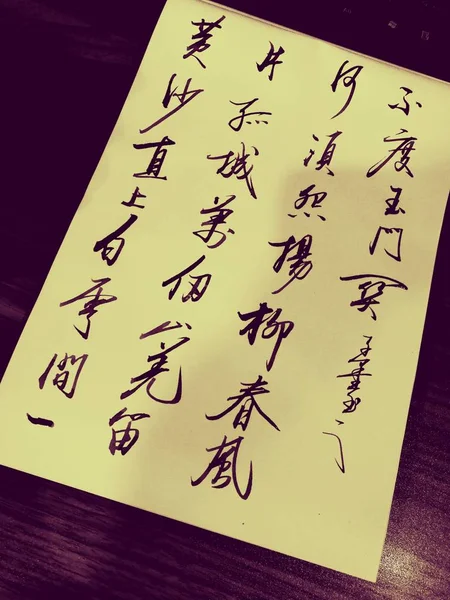 黄沙直上白雲間一
片孤城萬仞山羌笛
何須怨楊柳春風
不度玉門關